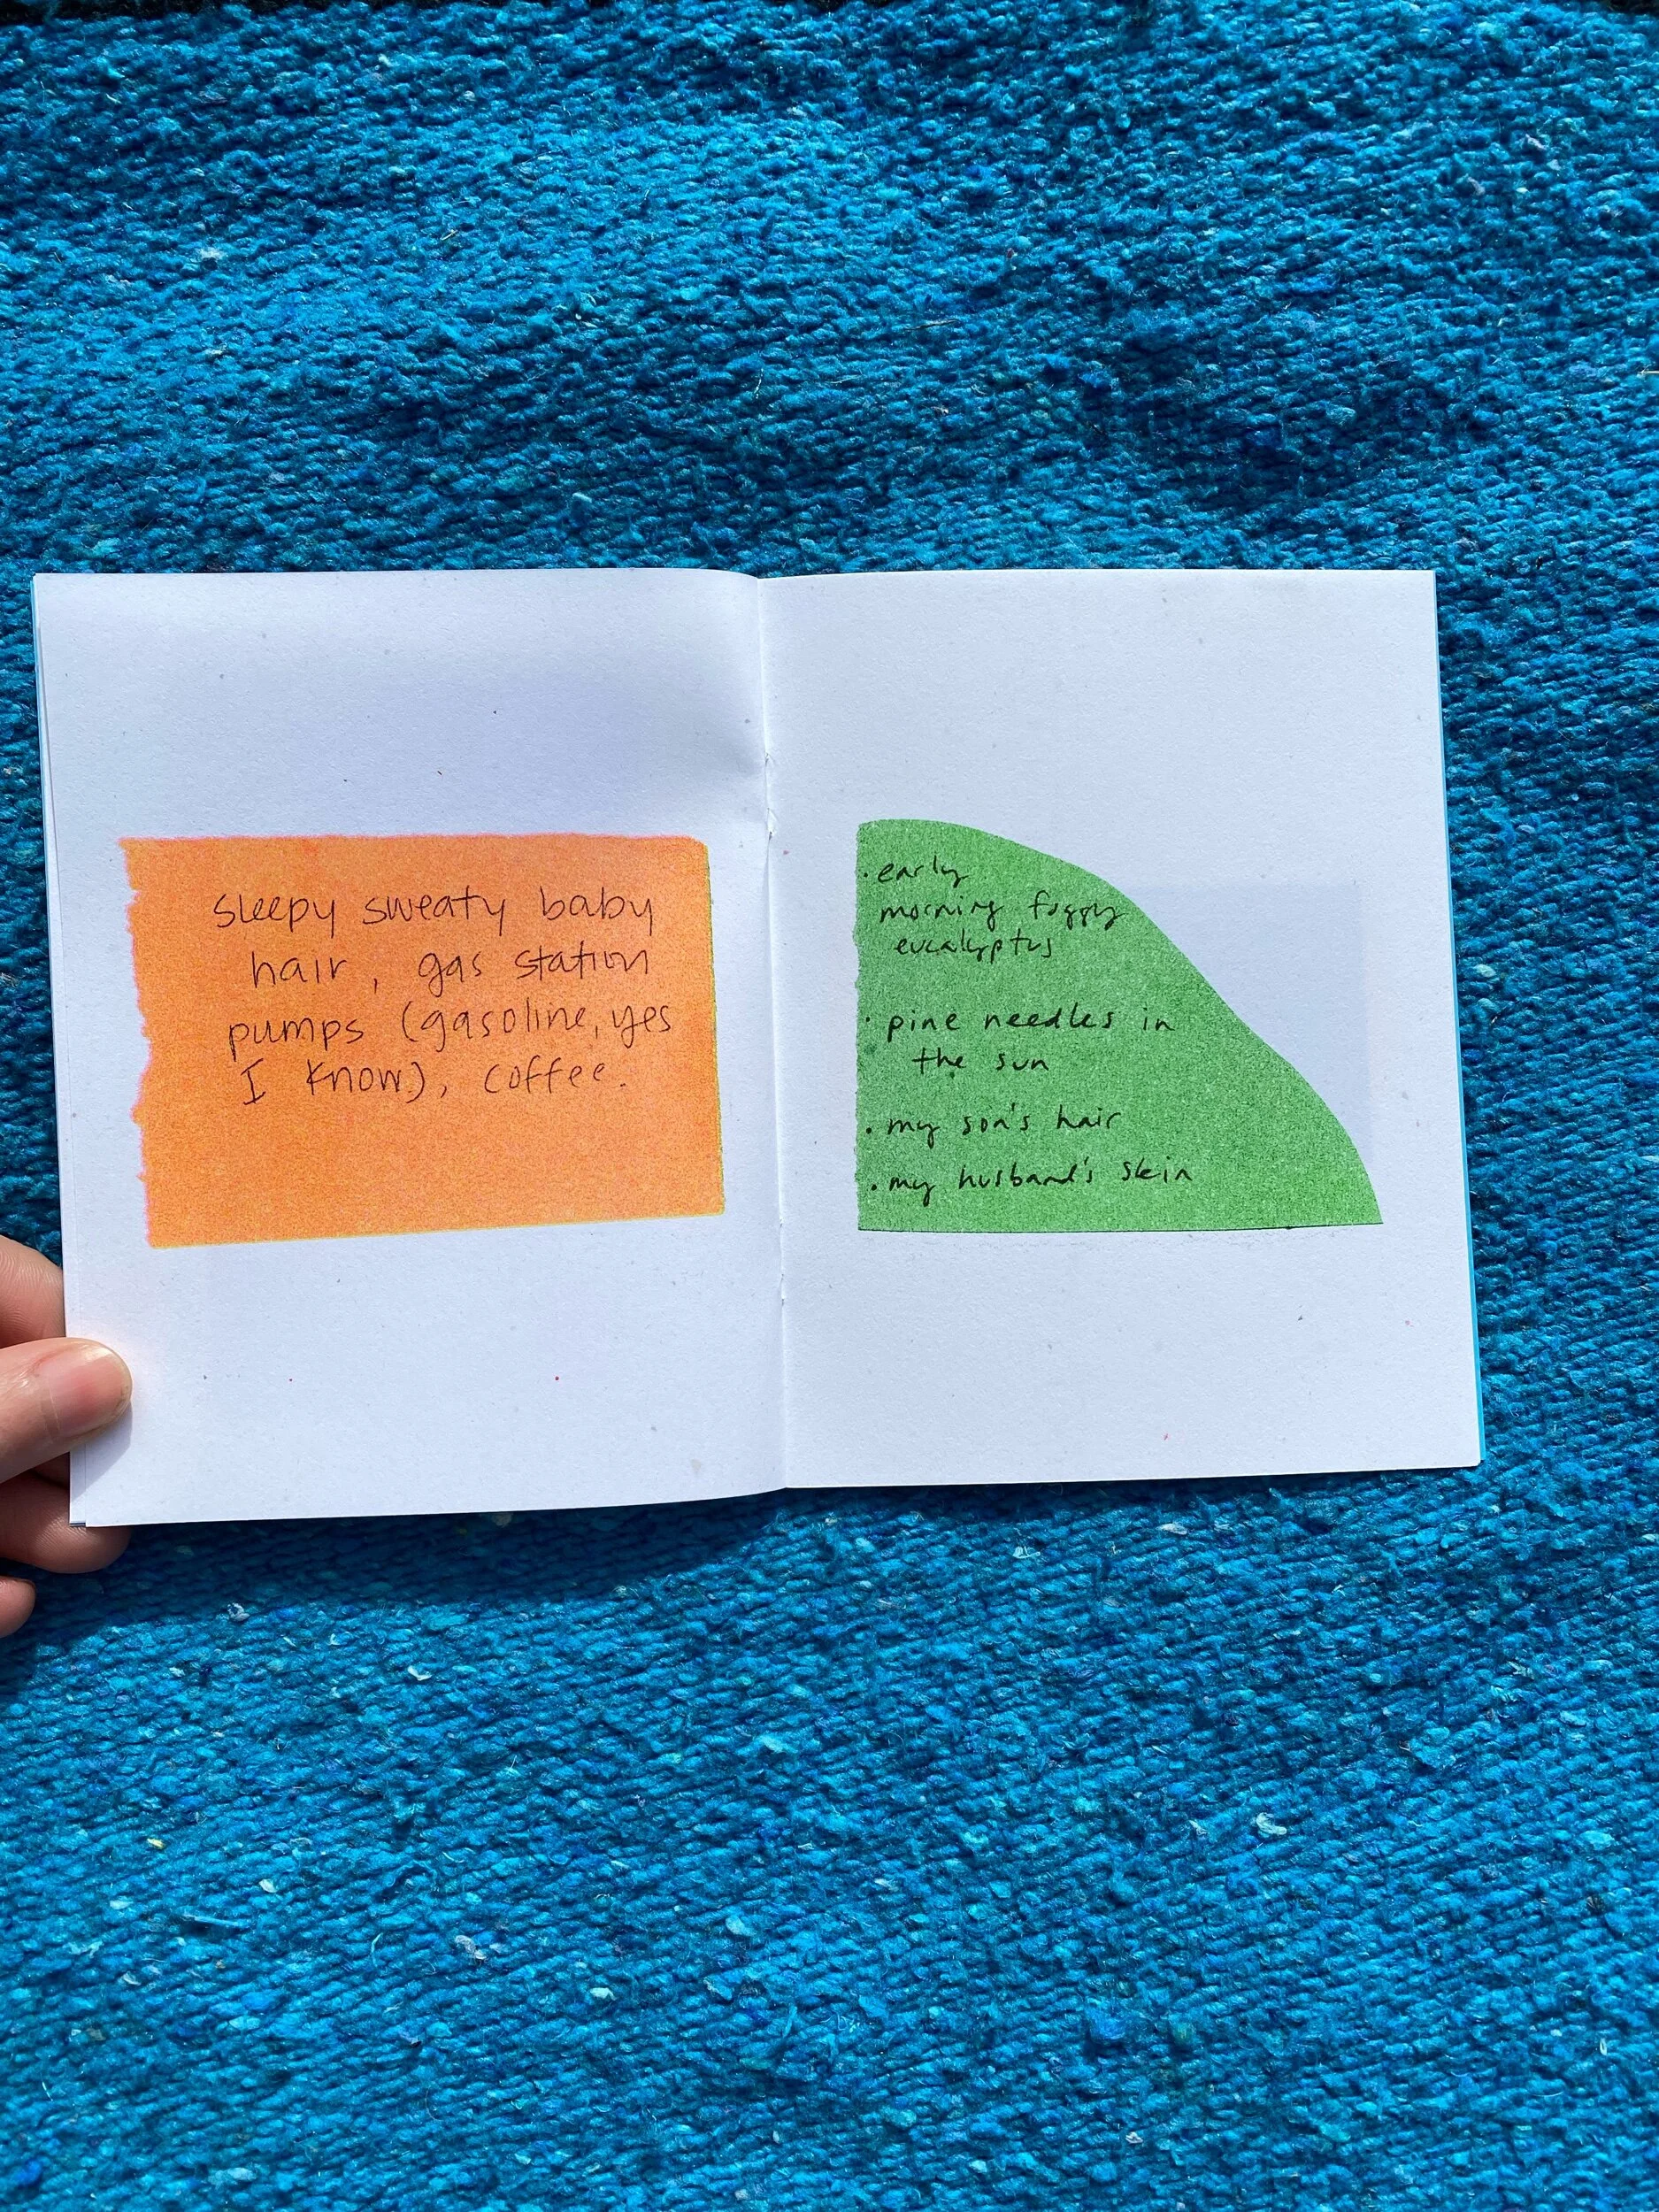 sleepy sweaty baby
hair, gas station
pumps (gasoline, yes
I know), coffee.
· early
morning foggy
eucalyptus
· pine needles in
the sun
· my son's hair
· my husband's skin